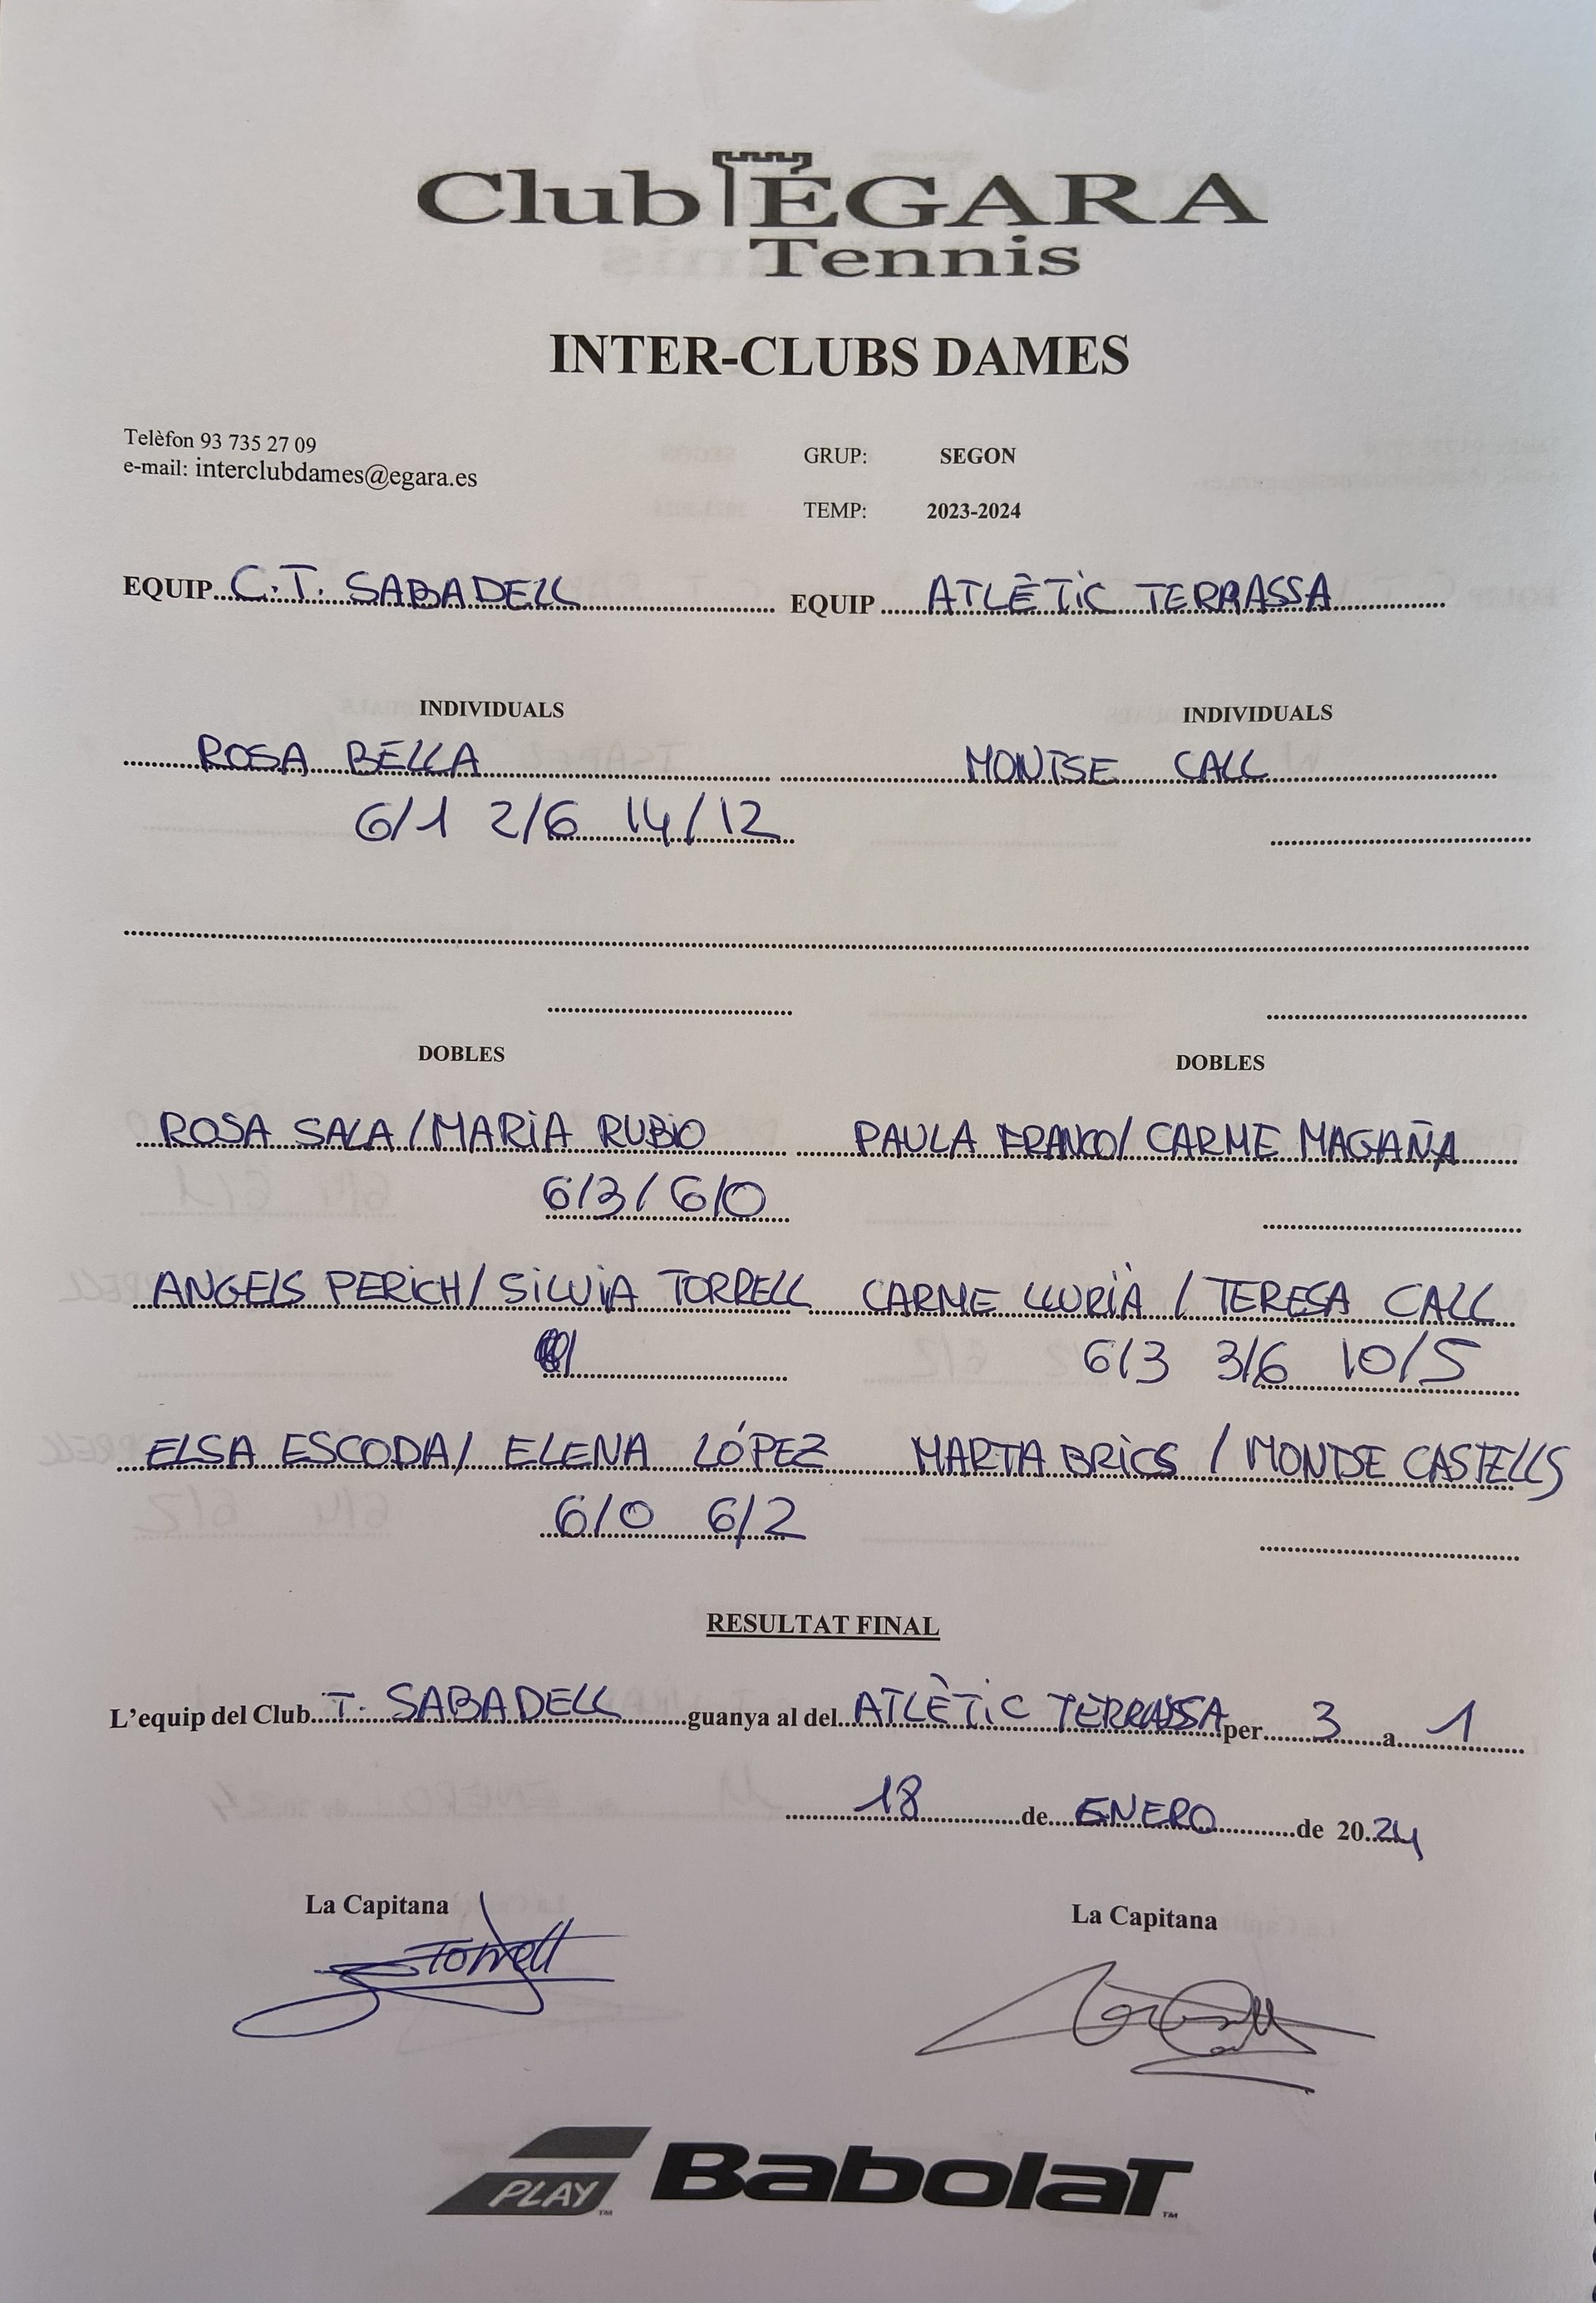 Club ÈGARA
Tennis
INTER-CLUBS DAMES
Telèfon 93 735 27 09
e-mail: interclubdames@egara.es
GRUP: SEGON
TEMP: 2023-2024
EQUIP C.T. SABADELL EQUIP ATLÈTIC TERRASSA
INDIVIDUALS INDIVIDUALS
ROSA BELLA MONTSE CALL
6/1 2/6 14/12
DOBLES DOBLES
ROSA SALA / MARIA RUBIO PAULA FRANCO / CARME MAGAÑA
6/3 / 6/0
ANGELS PERICH / SILVIA TORRELL CARME LLURIÀ / TERESA CALL
6/3 3/6 10/5
ELSA ESCODA / ELENA LÓPEZ MARTA BRICS / MONTSE CASTELLS
6/0 6/2
RESULTAT FINAL
L'equip del Club T. SABADELL guanya al del ATLÈTIC TERRASSA per 3 a 1
18 de ENERO de 2024
La Capitana La Capitana
Torrell
PLAY BABOLAT